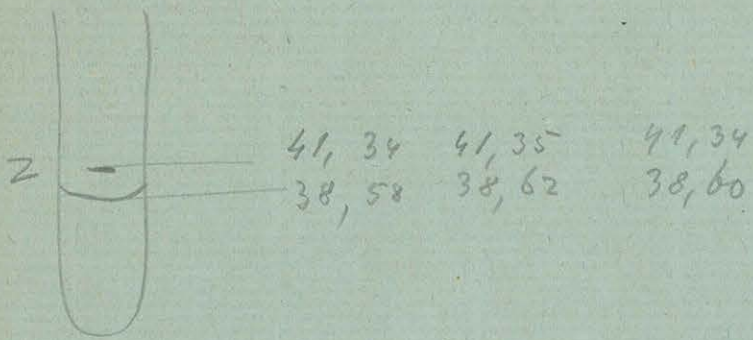 Z
41, 34 41, 35 41, 34
38, 58 38, 62 38, 60